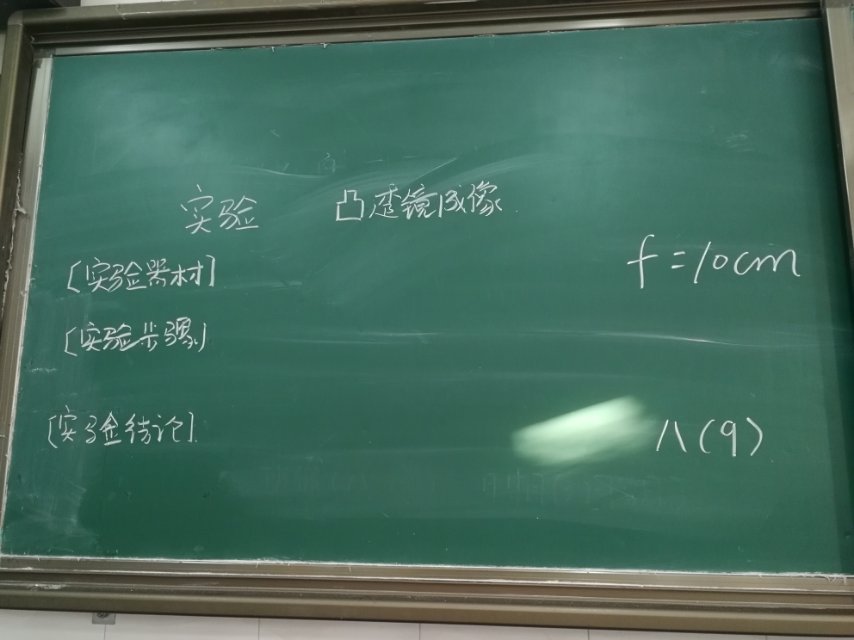 实验 凸透镜成像
[实验器材]
f=10cm
[实验步骤]
[实验结论]
八(9)